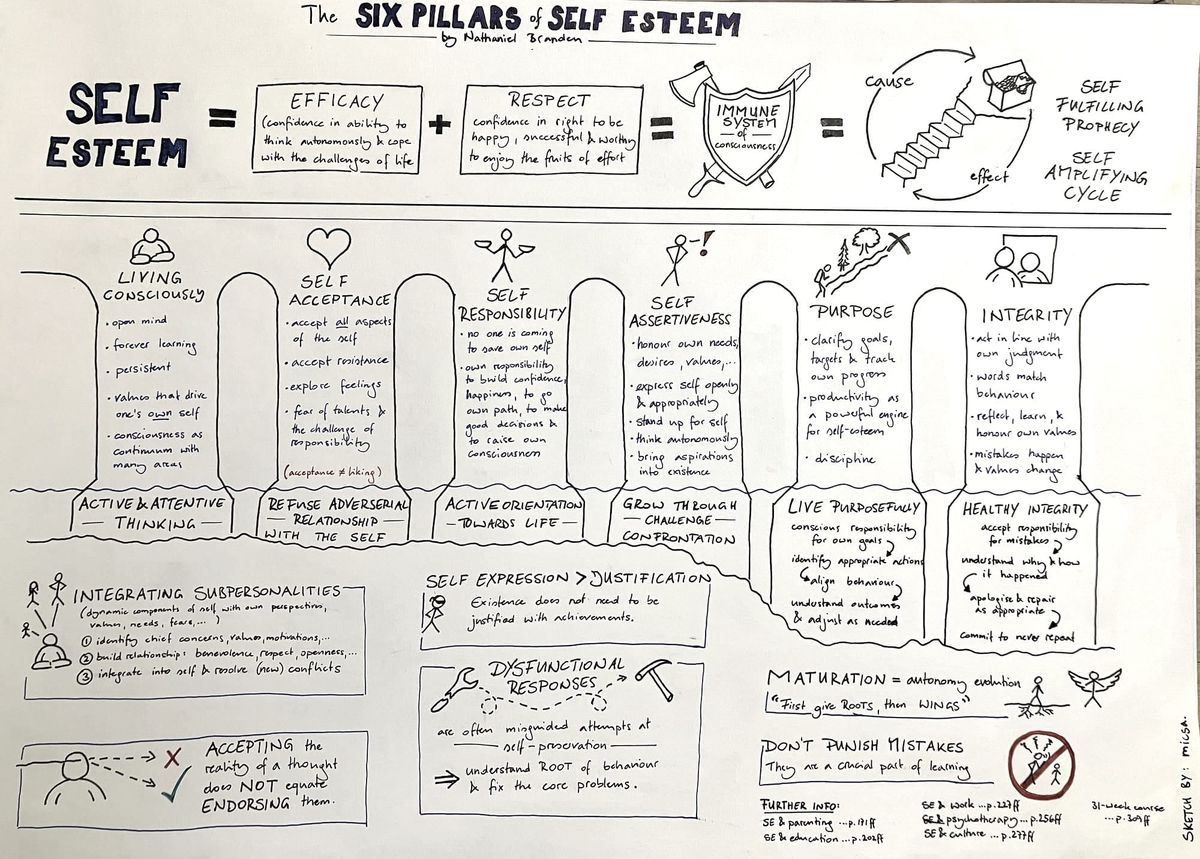 The SIX PILLARS of SELF ESTEEM
by Nathaniel Branden
SELF
ESTEEM
=
EFFICACY
(confidence in ability to
think autonomously & cope
with the challenges of life
+
RESPECT
confidence in right to be
happy, successful & worthy
to enjoy the fruits of effort
=
IMMUNE
SYSTEM
of
consciousness
=
cause
effect
SELF
FULFILLING
PROPHECY
SELF
AMPLIFYING
CYCLE
LIVING
CONSCIOUSLY
• open mind
• forever learning
• persistent
• values that drive
one's own self
• consciousness as
continuum with
many areas
ACTIVE & ATTENTIVE
— THINKING —
SELF
ACCEPTANCE
• accept all aspects
of the self
• accept resistance
• explore feelings
• fear of talents &
the challenge of
responsibility
(acceptance ≠ liking)
REFUSE ADVERSERIAL
— RELATIONSHIP —
WITH THE SELF
SELF
RESPONSIBILITY
• no one is coming
to save own self
• own responsibility
to build confidence,
happiness, to go
own path, to make
good decisions &
to raise own
consciousness
ACTIVE ORIENTATION
— TOWARDS LIFE —
!
SELF
ASSERTIVENESS
• honour own needs,
desires, values,...
• express self openly
& appropriately
• stand up for self
• think autonomously
• bring aspirations
into existence
GROW THROUGH
— CHALLENGE —
CONFRONTATION
PURPOSE
• clarify goals,
targets & track
own progress
• productivity as
a powerful engine
for self-esteem
• discipline
LIVE PURPOSEFULLY
conscious responsibility
for own goals
identify appropriate actions
align behaviour
understand outcomes
& adjust as needed
INTEGRITY
• act in line with
own judgment
• words match
behaviour
• reflect, learn, &
honour own values
• mistakes happen
& values change
HEALTHY INTEGRITY
accept responsibility
for mistakes
understand why & how
it happened
apologise & repair
as appropriate
commit to never repeat
INTEGRATING SUBPERSONALITIES
(dynamic components of self with own perspectives,
values, needs, fears,... )
① identify chief concerns, values, motivations,...
② build relationship: benevolence, respect, openness,...
③ integrate into self & resolve (new) conflicts
ACCEPTING the
reality of a thought
does NOT equate
ENDORSING them.
SELF EXPRESSION > JUSTIFICATION
Existence does not need to be
justified with achievements.
DYSFUNCTIONAL
RESPONSES
are often misguided attempts at
— self-preservation —
⇒ understand ROOT of behaviour
& fix the core problems.
MATURATION = autonomy evolution
"First give ROOTS, then WINGS"
DON'T PUNISH MISTAKES
They are a crucial part of learning
FURTHER INFO:
SE & parenting ...p.171ff
SE & education ...p.202ff
SE & work ...p.227ff
SE & psychotherapy...p.256ff
SE & culture ...p.277ff
31-week course
...p.309ff
SKETCH BY: micsa.